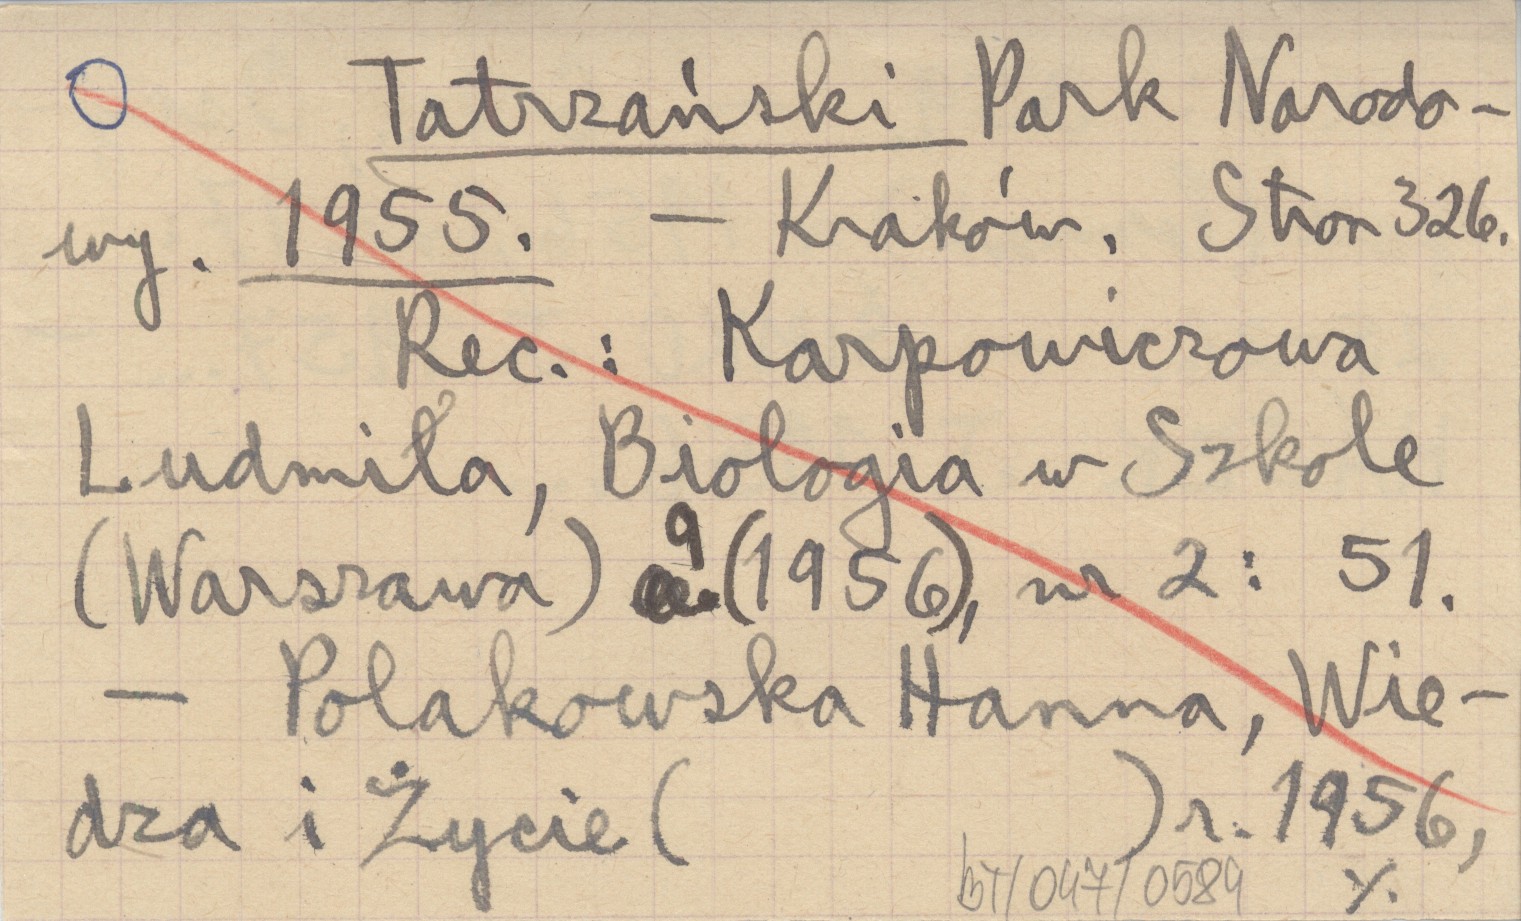 Tatrzański Park Narodo-
wy. 1955. — Kraków. Stron 326.
Rec.: Karpowiczowa
Ludmiła, Biologia w Szkole
(Warszawa) 9 (1956), nr 2: 51.
— Polakowska Hanna, Wie-
dza i Życie ( ) r. 1956,
bT/047/0589 ·/.